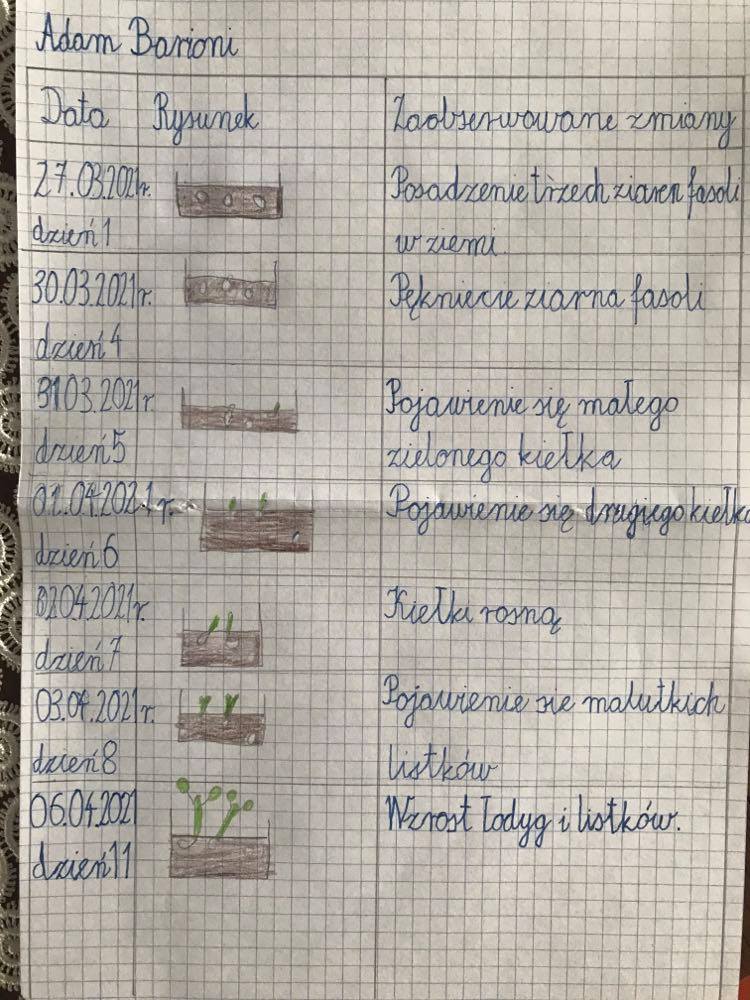 Adam Barioni
Data Rysunek Zaobserwowane zmiany
27.03.2021r. Posadzenie trzech ziaren fasoli
dzień 1 w ziemi.
30.03.2021r. Pęknięcie ziarna fasoli
dzień 4
31.03.2021r. Pojawienie się małego
dzień 5 zielonego kiełka
01.04.2021r. Pojawienie się drugiego kiełka
dzień 6
02.04.2021r. Kiełki rosną
dzień 7
03.04.2021r. Pojawienie się malutkich
dzień 8 listków
06.04.2021 Wzrost łodyg i listków.
dzień 11